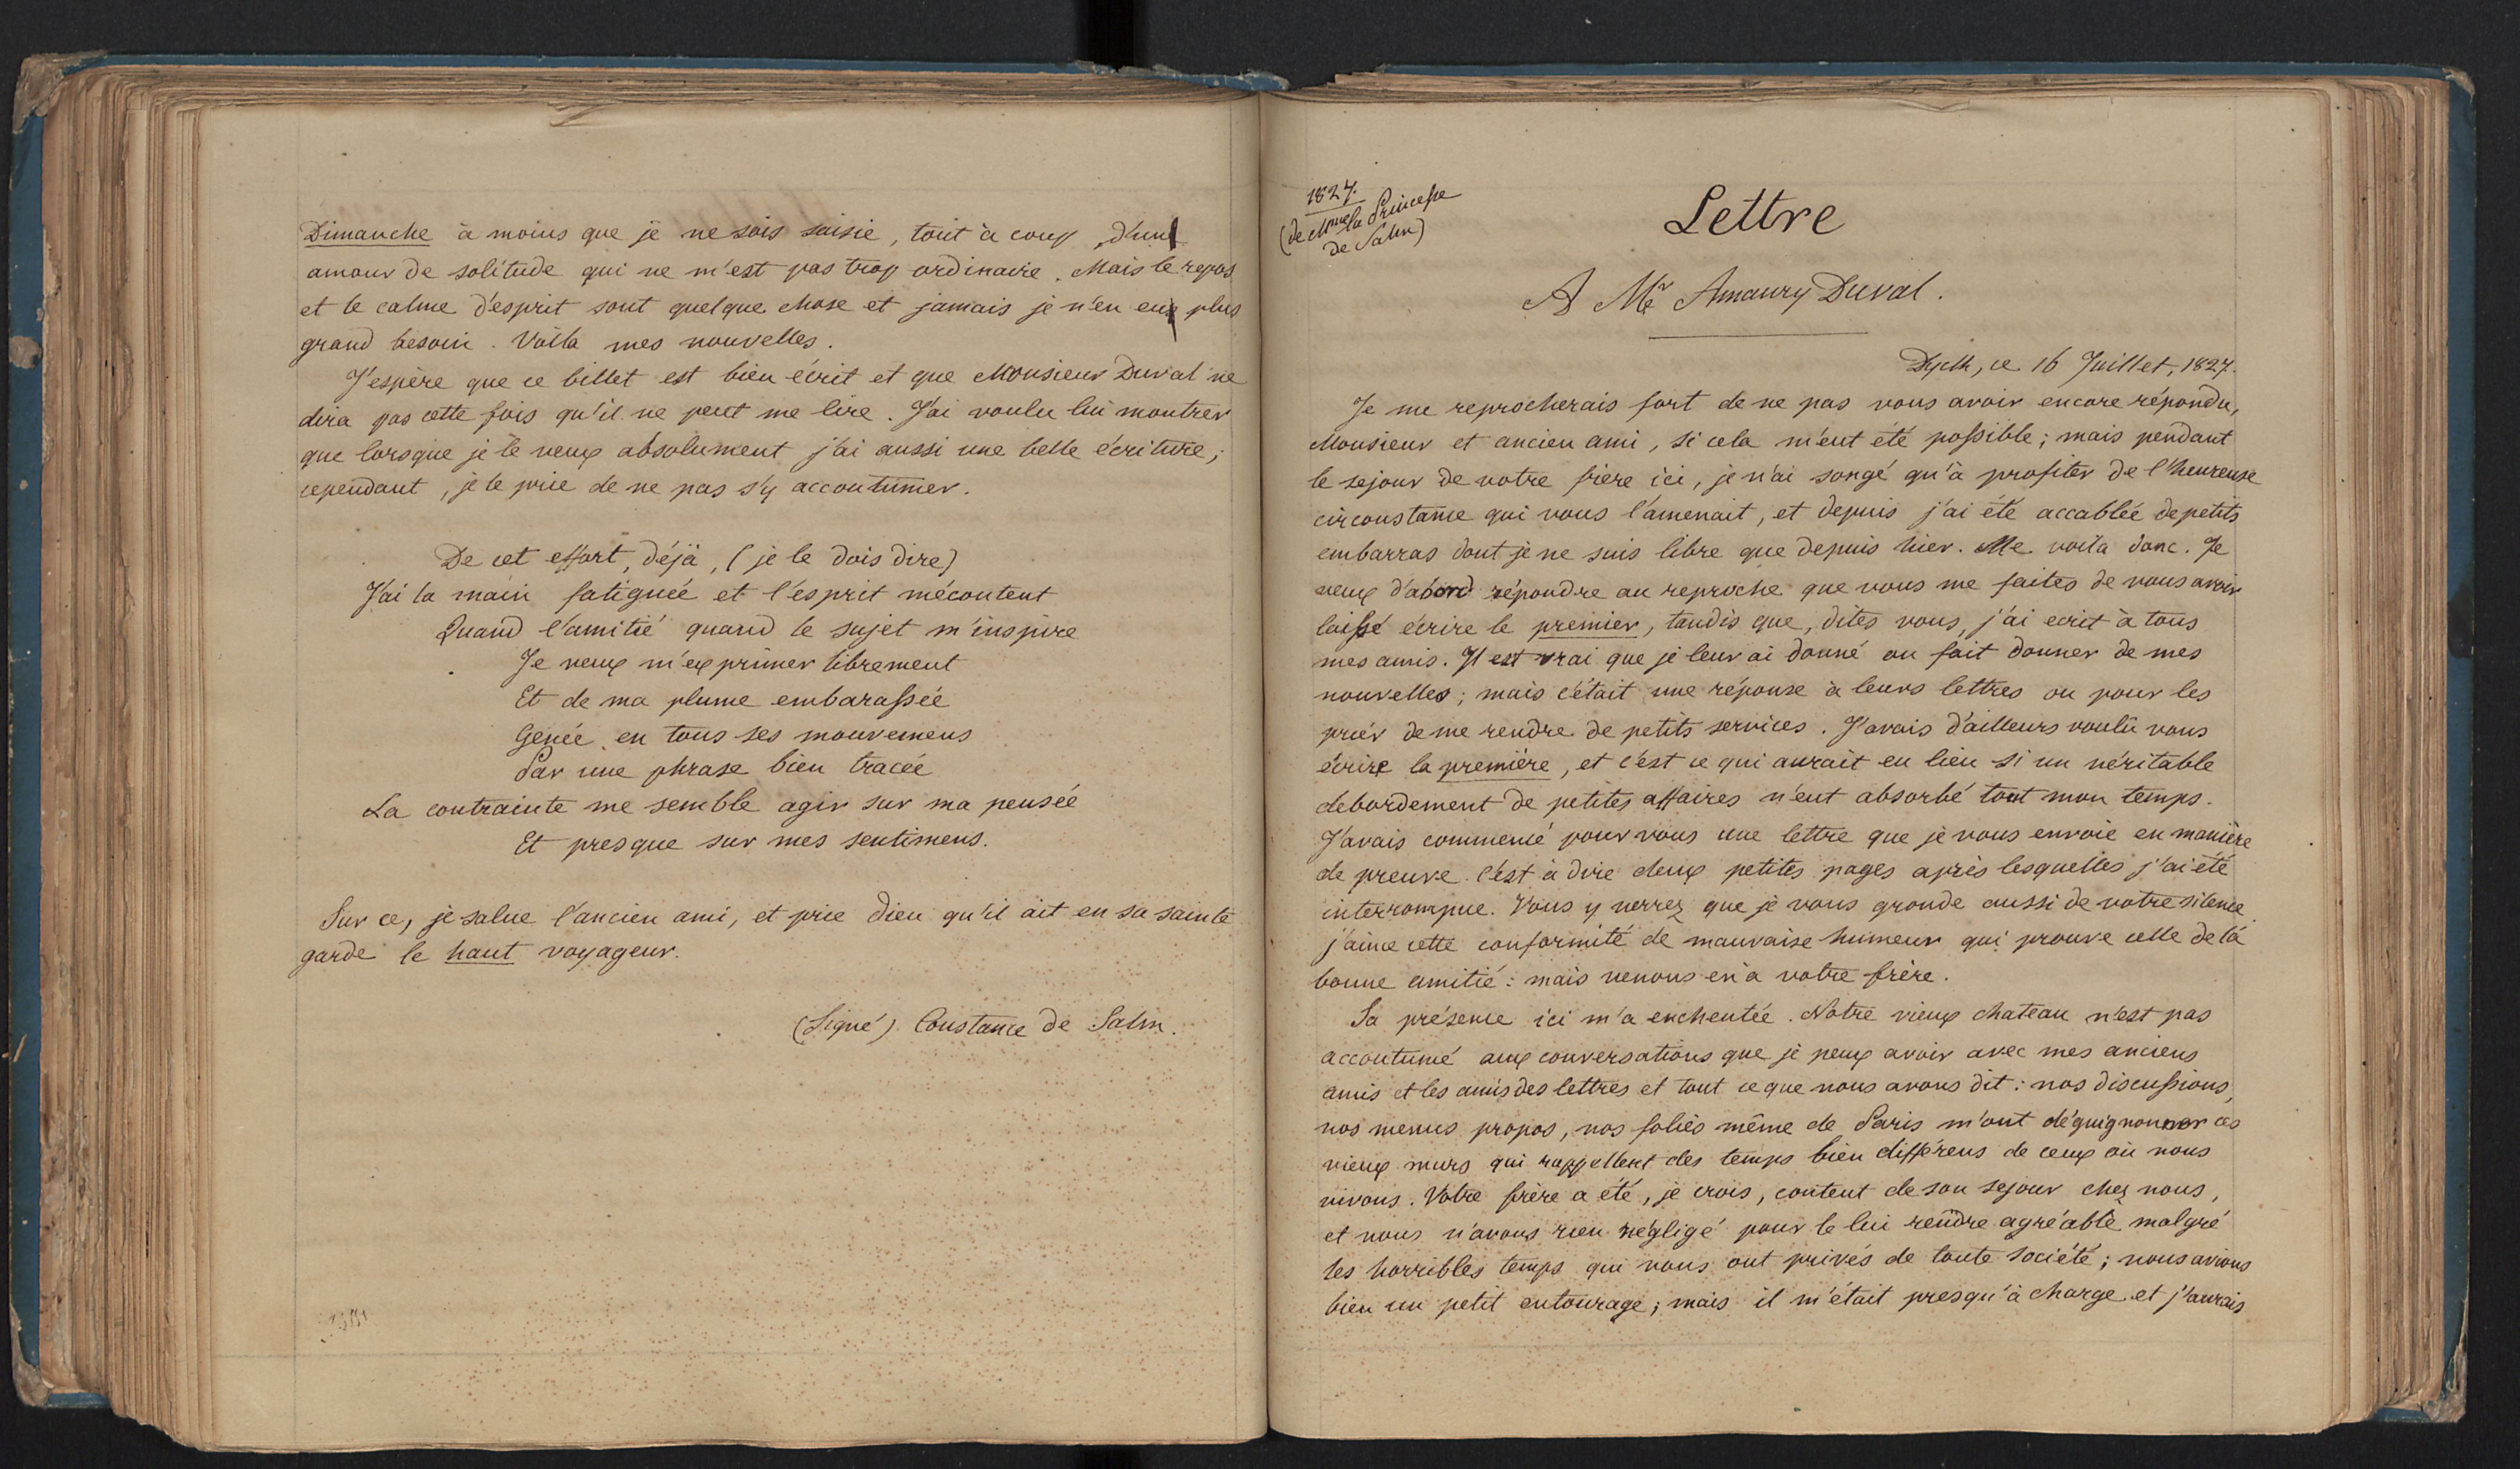 Dimanche à moins que je ne sois saisie, tout à coup, d'un
amour de solitude qui ne m'est pas trop ordinaire. Mais le repos
et le calme d'esprit sont quelque chose et jamais je n'en eus plus
grand besoin. Voila mes nouvelles.
J'espère que ce billet est bien écrit et que Monsieur Duval ne
dira pas cette fois qu'il ne peut me lire. J'ai voulu lui montrer
que lorsque je le veux absolument j'ai aussi une belle écriture;
cependant, je le prie de ne pas s'y accoutumer.
De cet effort, déjà, (je le dois dire)
J'ai la main fatiguée et l'esprit mécontent
Quand l'amitié quand le sujet m'inspire
Je veux m'exprimer librement
Et de ma plume embarassée
Genée en tous ses mouvemens
Par une phrase bien tracée
La contrainte me semble agir sur ma pensée
Et presque sur mes sentimens.
Sur ce, je salue l'ancien ami, et prie Dieu qu'il ait en sa sainte
garde le haut voyageur.
(Signé) Constance de Salm.
1827.
(de Mme la Princesse
de Salm)
Lettre
A Mr Amaury Duval.
Dyck, ce 16 Juillet, 1827.
Je me reprocherais fort de ne pas vous avoir encore répondu,
Monsieur et ancien ami, si cela m'eut été possible; mais pendant
le sejour de votre frère ici, je n'ai songé qu'à profiter de l'heureuse
circonstance qui nous l'amenait, et depuis j'ai été accablée de petits
embarras dont je ne suis libre que depuis hier. Me voila donc. Je
veux d'abord répondre au reproche que vous me faites de vous avoir
laissé écrire le premier, tandis que, dites vous, j'ai ecrit à tous
mes amis. Il est vrai que je leur ai donné ou fait donner de mes
nouvelles; mais c'était une réponse à leurs lettres ou pour les
prier de me rendre de petits services. J'avais d'ailleurs voulu vous
écrire la première, et c'est ce qui aurait eu lieu si un véritable
debordement de petites affaires n'eut absorbé tout mon temps.
J'avais commencé pour vous une lettre que je vous envoie en manière
de preuve. C'est à dire deux petites pages après lesquelles j'ai été
interrompue. Vous y verrez que je vous gronde aussi de votre silence
j'aime cette conformité de mauvaise humeur qui prouve celle de la
bonne amitié: mais venons en à votre frère.
Sa présence ici m'a enchentée. Notre vieux chateau n'est pas
accoutumé aux conversations que je peux avoir avec mes anciens
amis et les amis des lettres et tout ce que nous avons dit: nos discussions,
nos menus propos, nos folies même de Paris m'ont déguignonner ces
vieux murs qui rappellent des temps bien différens de ceux où nous
vivons. Votre frère a été, je crois, content de son sejour chez nous,
et nous n'avons rien négligé pour le lui rendre agréable malgré
les horribles temps qui nous ont privés de toute société; nous avions
bien un petit entourage; mais il m'était presqu'à charge et j'aurais